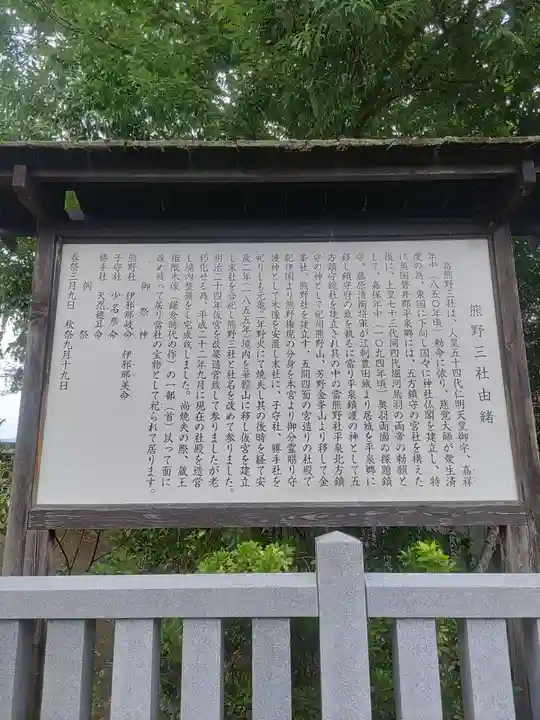 熊野三社由緒
当熊野三社は、人皇五十四代仁明天皇御宇、嘉祥
年中(八五〇年頃)、勅命に依り、慈覚大師が衆生済
度の為、東国に下向し国々に神社仏閣を建立し、特
に奥国磐井郡平泉郷には、五方鎮守の宮社を構えた
後に、上皇七十三代同四代堀河鳥羽の両帝の勅願と
して、嘉保年中(一〇九四年頃)、奥羽両国の探題鎮
守、藤原清衡将軍が江刺豊田城より居城を平泉郷に
移し鎮守府の政を執るに当り平泉鎮護の神として五
方鎮守総社を建立され其の中の当熊野社平泉北方鎮
守の神として紀州熊野山、芳野金峯山より移して金
峯社、熊野社を建立す、五間四面の宮造りの社殿で
紀伊国より熊野権現の分身を本宮より御分霊賜り守
護神として本像を安置し末社に、子守社、勝手社を
祀りしも元亀二年野火にて焼失し其の後時を経て安
政二年(一八五五年)境内を毛越山に移し仮宮を建立
し末社を合祀し熊野三社と社名を改めて参りました。
明治二十四年仮宮を改築造営して参りましたが老
朽化せる為、平成二十二年九月に現在の社殿を造営
し境内整備をし完成致しました。尚焼失の際、蔵王
権現木像(鎌倉時代の作)の一部(首)以って面に
改め残って居り当社の宝物として祀られて居ります。
御祭神
熊野社 伊邪那岐命 伊邪那美命
子守社 少名彦命
勝手社 天忍穂耳命
例祭
春祭三月九日 秋祭九月十九日